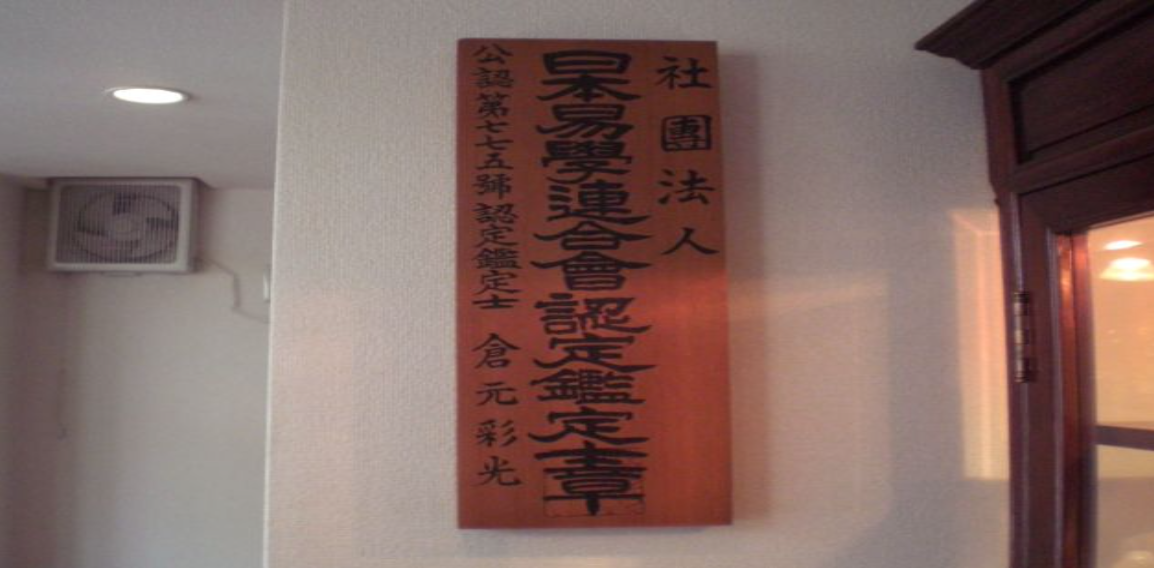 社團法人
日本易學連合會認定鑑定士章
公認第七七五號認定鑑定士 倉元彩光